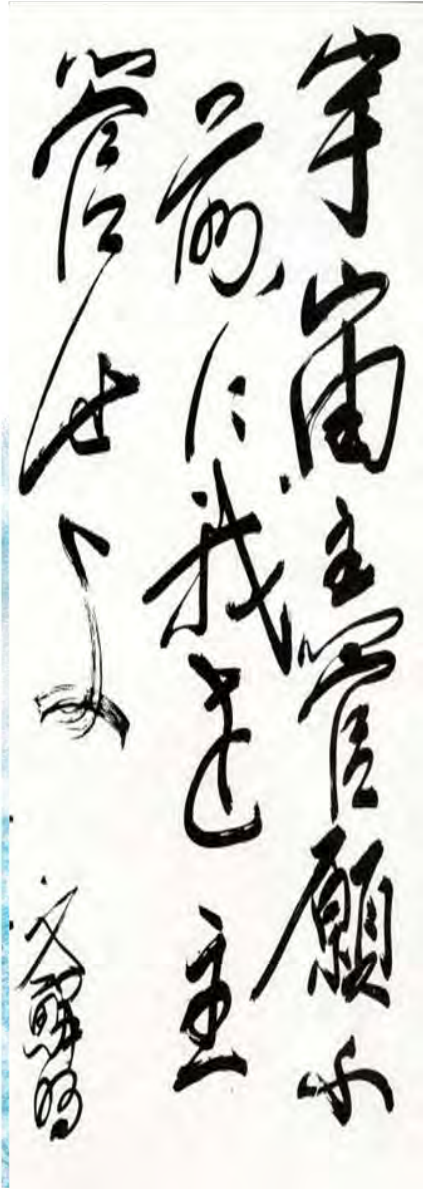 宇宙主管願ふ
前に我を主
管せよ
文鮮明